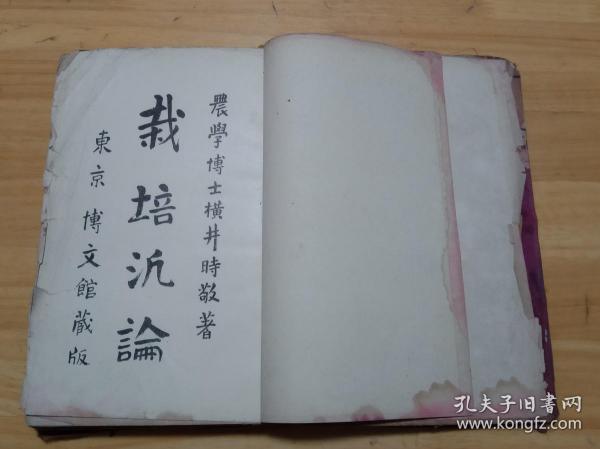 農學博士橫井時敬著
栽培汎論
東京 博文館藏版
孔夫子旧书网
www.kongfz.com